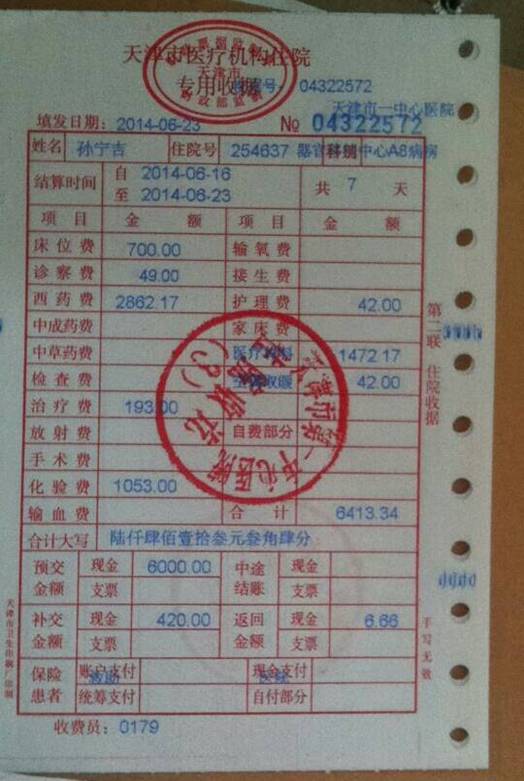 天津市医疗机构住院
专用收据 04322572
天津市一中心医院
填发日期：2014-06-23 № 04322572
姓名 孙宁吉 住院号 254637 器官移植中心A8病房
结算时间 自 2014-06-16 至 2014-06-23 共 7 天
项目 金额 项目 金额
床位费 700.00 输氧费
诊察费 49.00 接生费
西药费 2862.17 护理费 42.00
中成药费 家床费
中草药费 1472.17
检查费 42.00
治疗费 193.00
放射费 自费部分
手术费
化验费 1053.00
输血费 合计 6413.34
合计大写 陆仟肆佰壹拾叁元叁角肆分
预交金额 现金 6000.00 中途结账 现金
支票 支票
补交金额 现金 420.00 返回金额 现金 6.66
支票 支票
保险患者 账户支付 现金支付
统筹支付 自付部分
收费员：0179
第二联 住院收据
手写无效
天津市卫生印刷厂印制